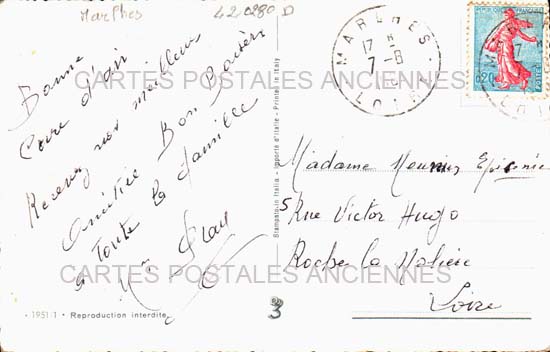 Marlhes
420280 D
Bonne
Cure d'air
Recevez nos meilleur
Amitié Bon Baisers
a Toute la famille
1951/1 • Reproduction interdite
Stampato in Italia - Importé d'Italie - Printed in Italy
MARLHES
17
7-8
LOIRE
0,20
Madame Epicerie
5 Rue Victor Hugo
Roche la Molière
Loire
3
CARTES POSTALES ANCIENNES
CARTES POSTALES ANCIENNES